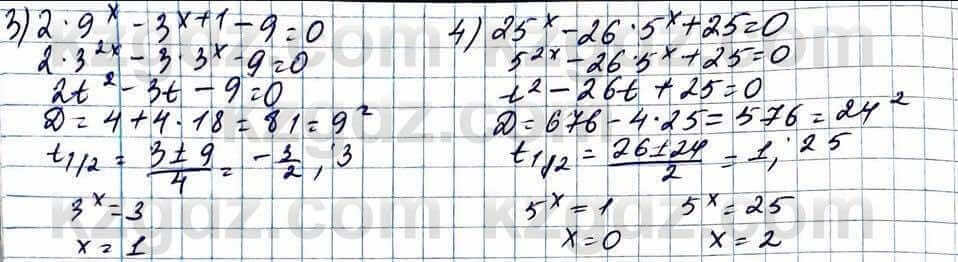 3) 2 · 9^x - 3^{x+1} - 9 = 0
2 · 3^{2x} - 3 · 3^x - 9 = 0
2t^2 - 3t - 9 = 0
D = 4 + 4 · 18 = 81 = 9^2
t_{1/2} = \frac{3 ± 9}{4} = -\frac{3}{2} ; 3
3^x = 3
x = 1
4) 25^x - 26 · 5^x + 25 = 0
5^{2x} - 26 · 5^x + 25 = 0
t^2 - 26t + 25 = 0
D = 676 - 4 · 25 = 576 = 24^2
t_{1/2} = \frac{26 ± 24}{2} = 1; 25
5^x = 1 5^x = 25
x = 0 x = 2
kzgdz.com